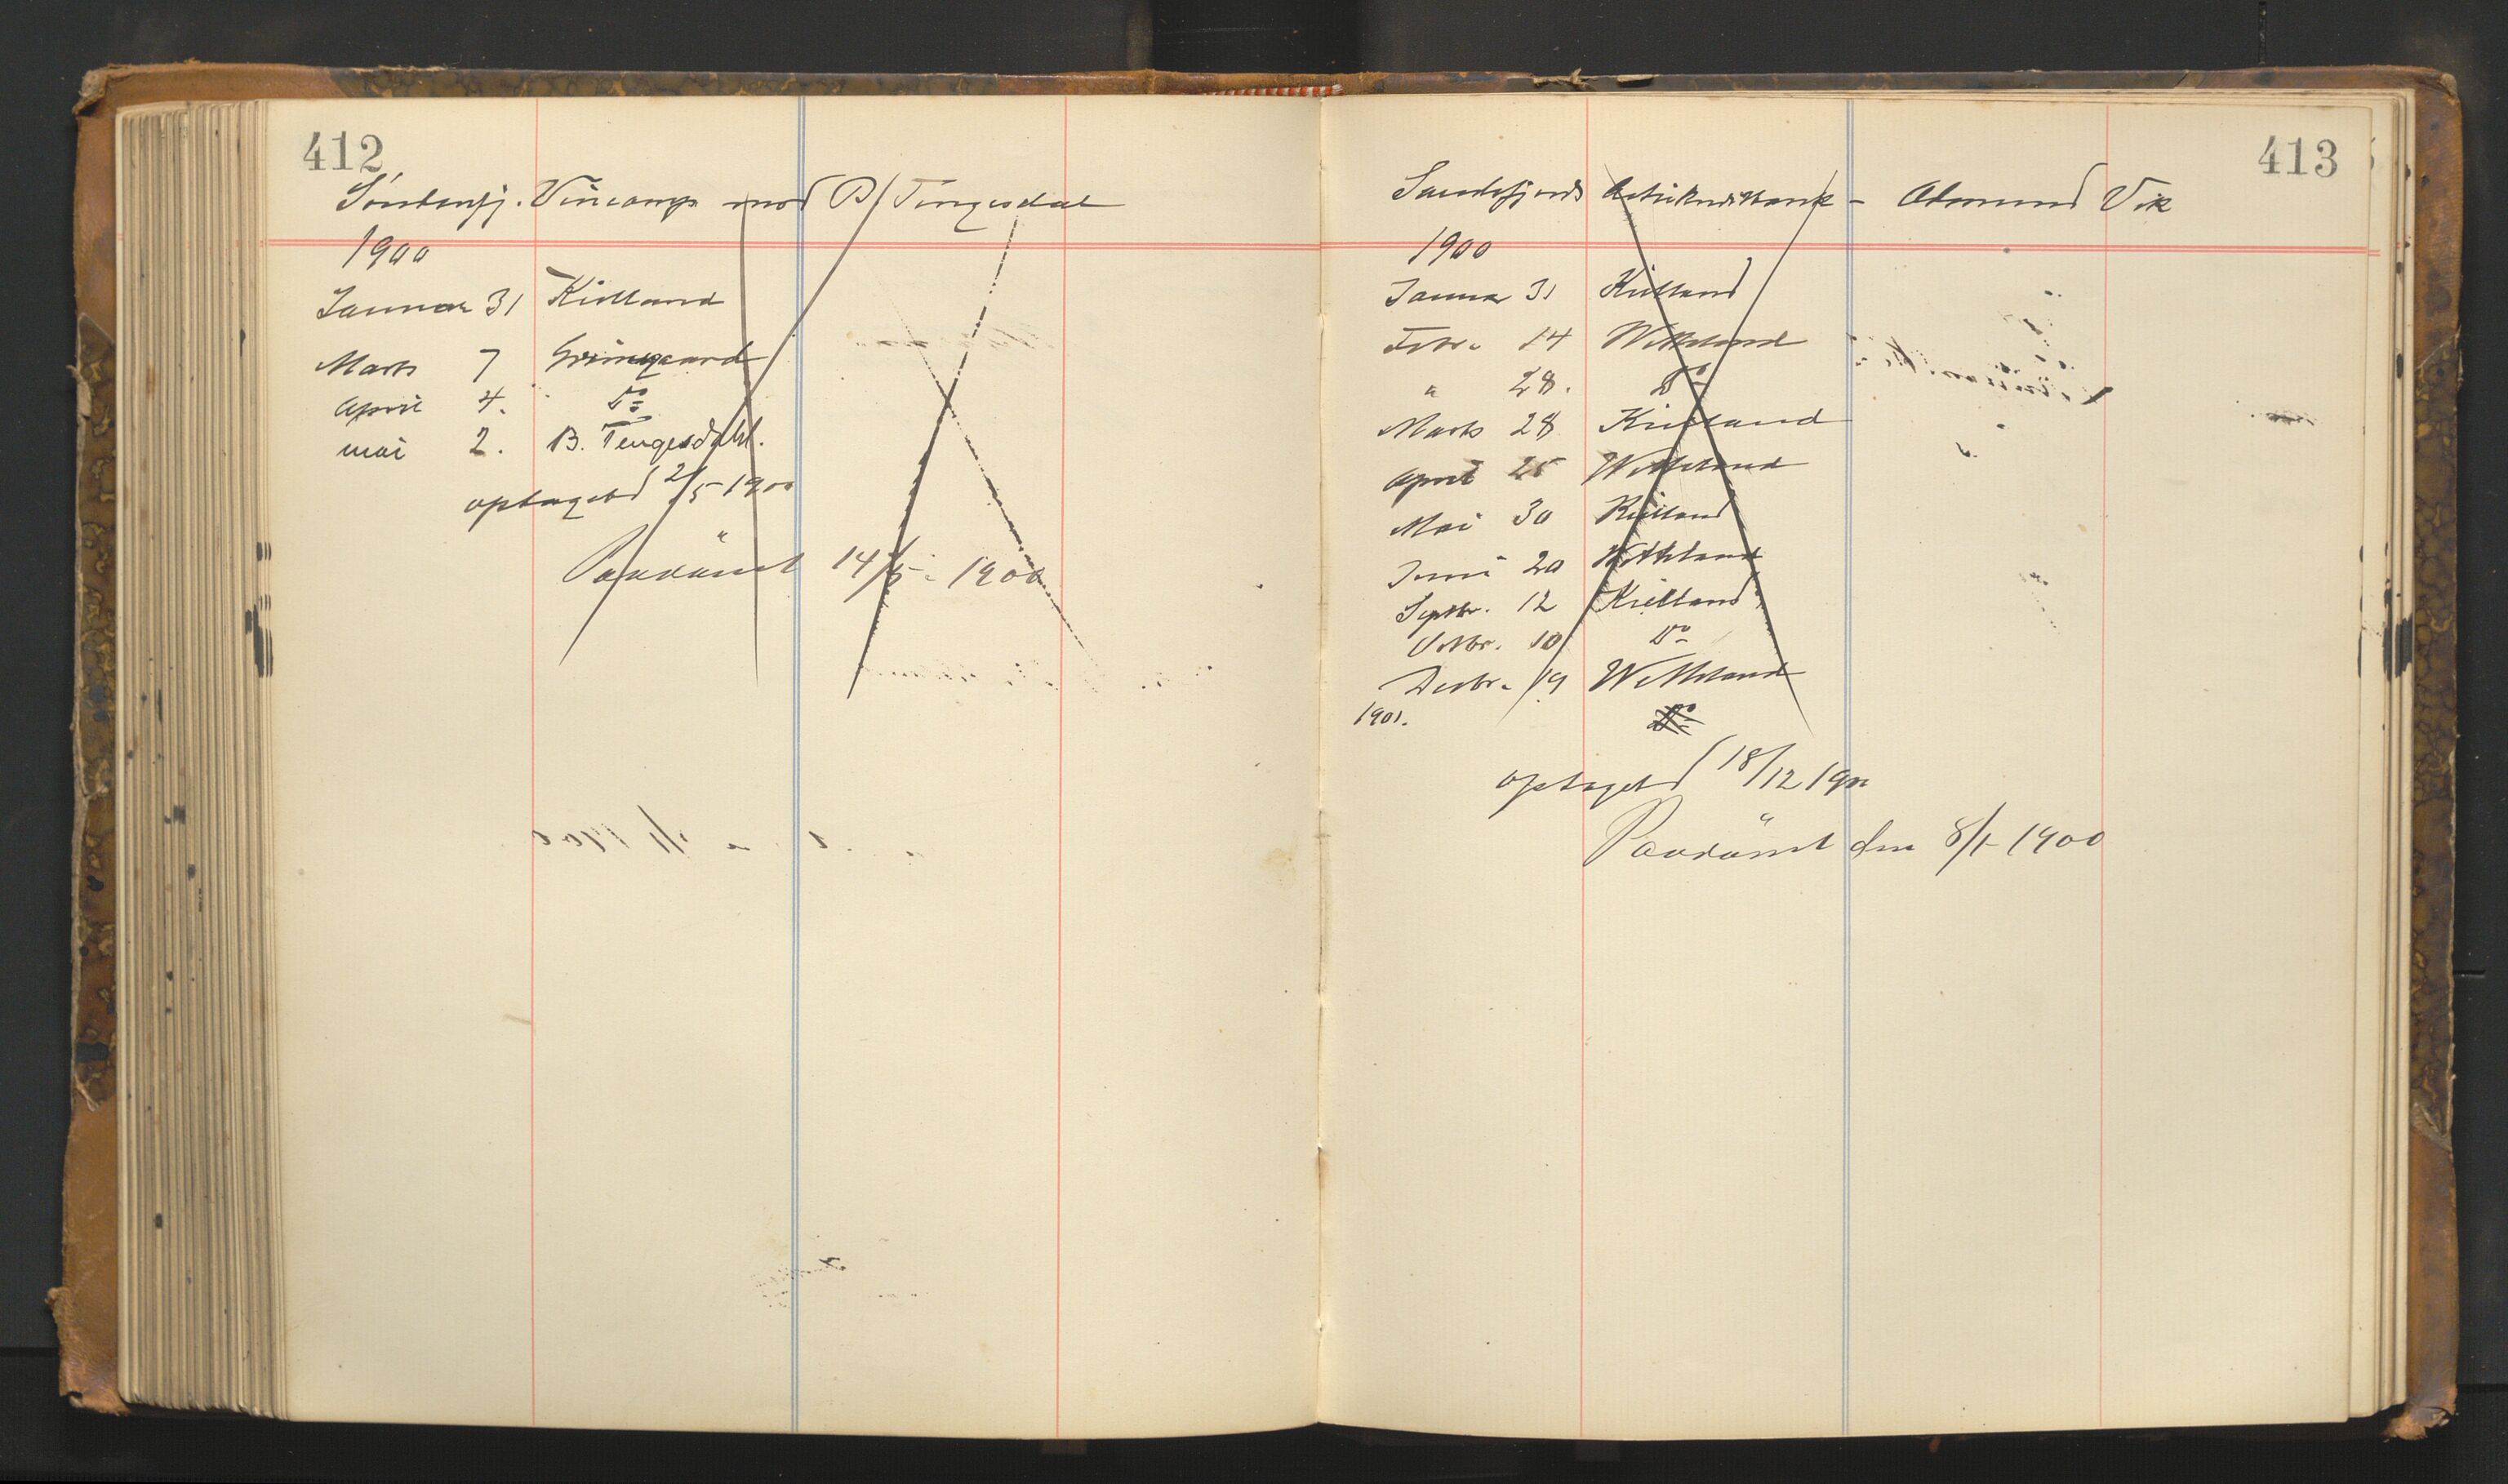 412
Söndenfj. Vincomp mod B/ Tengesdal
1900
Januar 31 Kielland
Marts 7 Grimgaard
April 4. Do
mai 2. B. Tengesdahl.
optaget 2/5 1900
Paadömt 14/5 - 1900
413
Sandefjords Actiekreditbank - Aamund Vik
1900
Januar 31 Kielland
Febr. 14 Wetheland
" 28. Do
Marts 28 Kielland
April 25 Wetheland
Mai 30 Kielland
Juni 20 Wetheland
Septbr. 12 Kielland
Octbr. 10 Do
Decbr. 19 Wetheland
1901. Do
optaget 18/12 1900
Paadömt den 8/1 - 1900